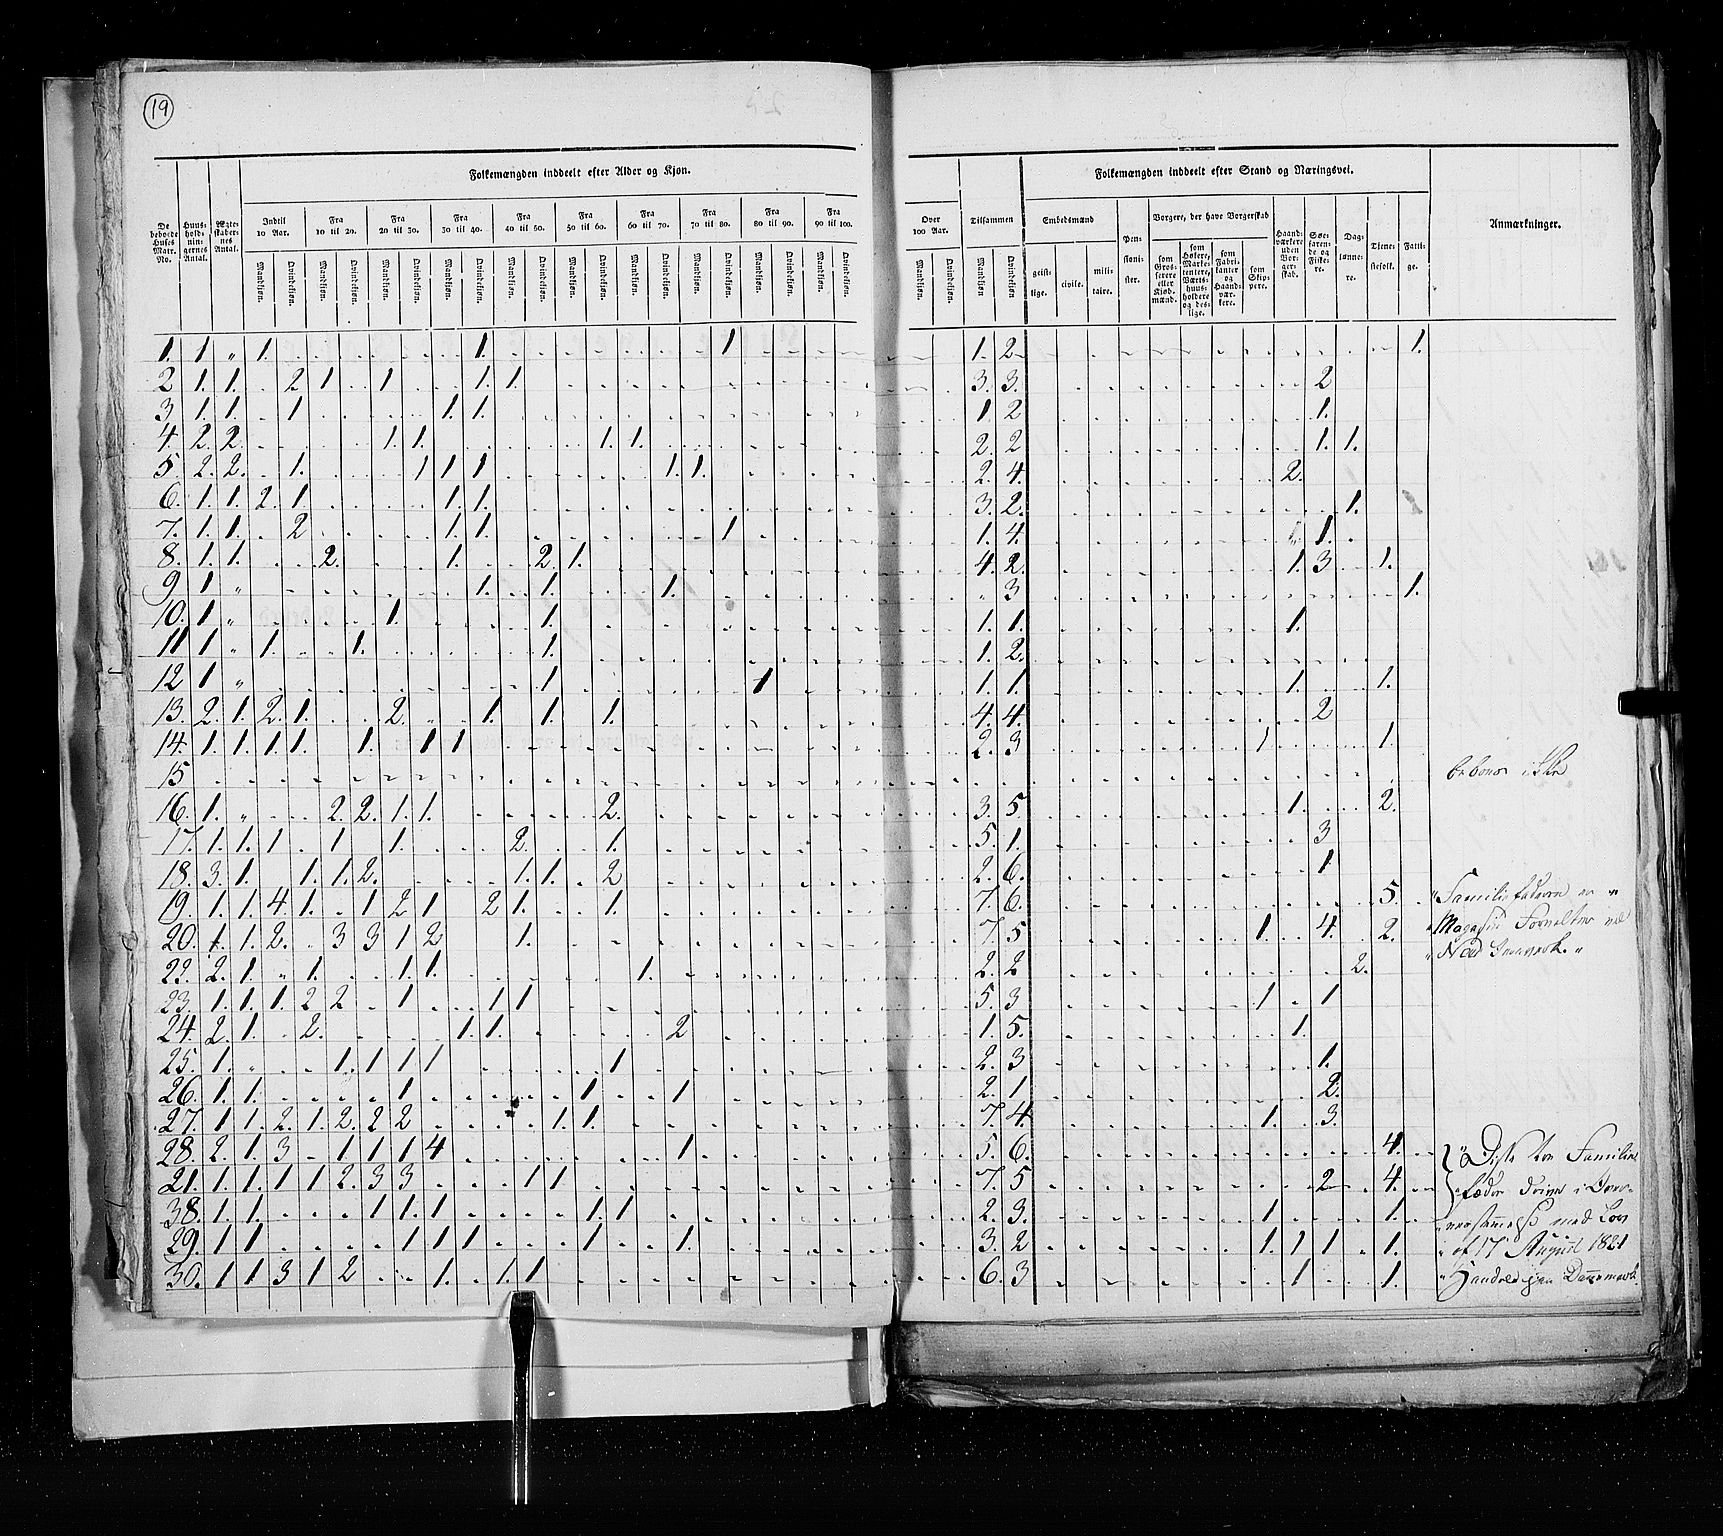 19
Folkemængden inddeelt efter Alder og Kjøn.
Folkemængden inddeelt efter Stand og Næringsvei.
De beboede Huses Matr. No.
Huus-hold-nin-gernes Antal.
Ægte-skaber-nes Antal.
Indtil 10 Aar.
Fra 10 til 20.
Fra 20 til 30.
Fra 30 til 40.
Fra 40 til 50.
Fra 50 til 60.
Fra 60 til 70.
Fra 70 til 80.
Fra 80 til 90.
Fra 90 til 100.
Over 100 Aar.
Tilsammen
Embedsmænd
geist-lige.
civile.
mili-taire.
Pen-sioni-ster.
Borgere, der have Borgerskab
som Grosserere eller Kjøbmænd.
som Skip-pere.
Haand-værkere uden Borger-skab.
Søe-faren-de og Fiske-re.
Dag-lønne-re.
Tjene-stefolk.
Fatti-ge.
Anmærkninger.
Mandkjøn. Qvindekjøn.
1. 1 " 1. 1. 1 1. 2 1.
2 1. 1. 2 1 1 1. 1. 3. 3. 2
3 1. 1. 1 1. 1. 1 2 1.
4. 2. 2. 1. 1. 1. 1. 2. 2 1. 1.
5 2. 2. 1. 1 1 1 1. 1. 2. 4. 2.
6. 1. 1. 2. 1. 1. 1. 3. 2. 1.
7. 1. 1. 2 1. 1. 1 1. 4. " 1.
8. 1. 1. 2. 1. 2. 1. 4. 2. 1. 3 1.
9 1 " 1. 1. 1. " 3 1.
10. 1 " 1. 1. 1. 1. 1.
11 1 " 1. 1. 1. 1. 2.
12 1 " 1. 1 1. 1. 1. 1.
13. 2. 1. 2. 1. 2. 1. 1. 1. 4. 4. 2
14. 1. 1. 1. 1. 1. 1 1 2. 3 1 1.
15 beboes ikke
16. 1. " 2. 2. 1. 1. 2. 3. 5. 1. 2.
17. 1. 1. 1 1. 1. 2. 1. 5. 1. 3
18. 3. 1. 1. 1. 2. 1. 1. 2 2. 6. 1.
19. 1. 1. 4. 1. 1 2 1 2 1. 1. 7. 6. 5. "Familiefaderen er "
20. 1. 1. 2. 3 3 1 2 1. 7. 5 1. 4. 2. "Magasin
22. 2. 1. " 1. 1. 1. 1. 2. 2 2.
23. 1. 1. 1. 2 2. 1 1 1 5. 3 1 1
24. 2. 1. 2. 1. 1. 2 1. 5. 1.
25. 1. " 1. 1. 1 1 1 2. 3 1.
26. 1. 1. 1 1 1 2. 1 2.
27. 1 1. 2. 1. 2. 2 2 1. 1. 7. 4 1. 3.
28. 2. 1. 3 1 1 1 4 1 5. 6. 4. "Disse Familie
21. 1. 1. 1 1 2. 3 3 1 1 7. 5 2 4. fædre
38. 1. 1 1 1. 1 1. 1 2. 3. 1 1. med Lov
29. 1 1 1 1 1 1 1. 3. 2 1. 1 1 1. af 17 August 1821
30. 1 1 3 1 2 1. 1. 1 6. 3 1 1.